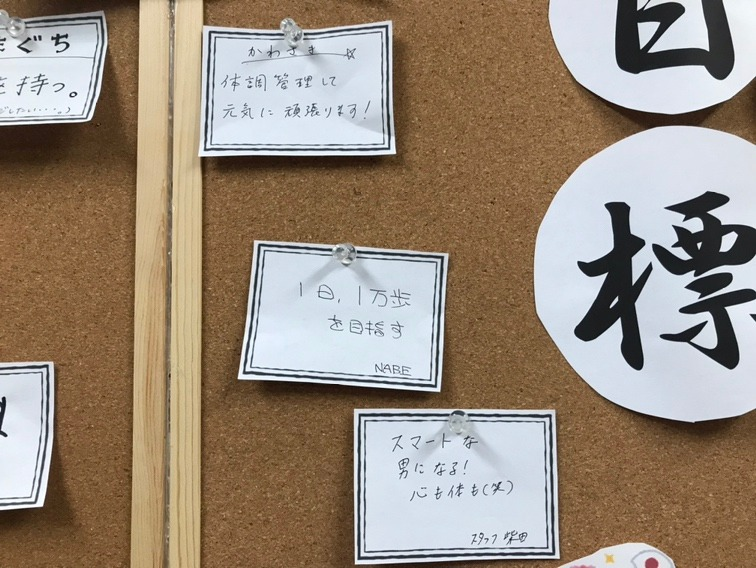 ぐち
を持つ。
かわさき ☆
体調管理して
元気に頑張ります！
1日,1万歩
を目指す
NABE
スマートな
男になる！
心も体も(笑)
スタッフ 柴田
目
標